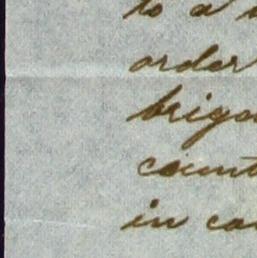 to a
order
briga
count
in ca